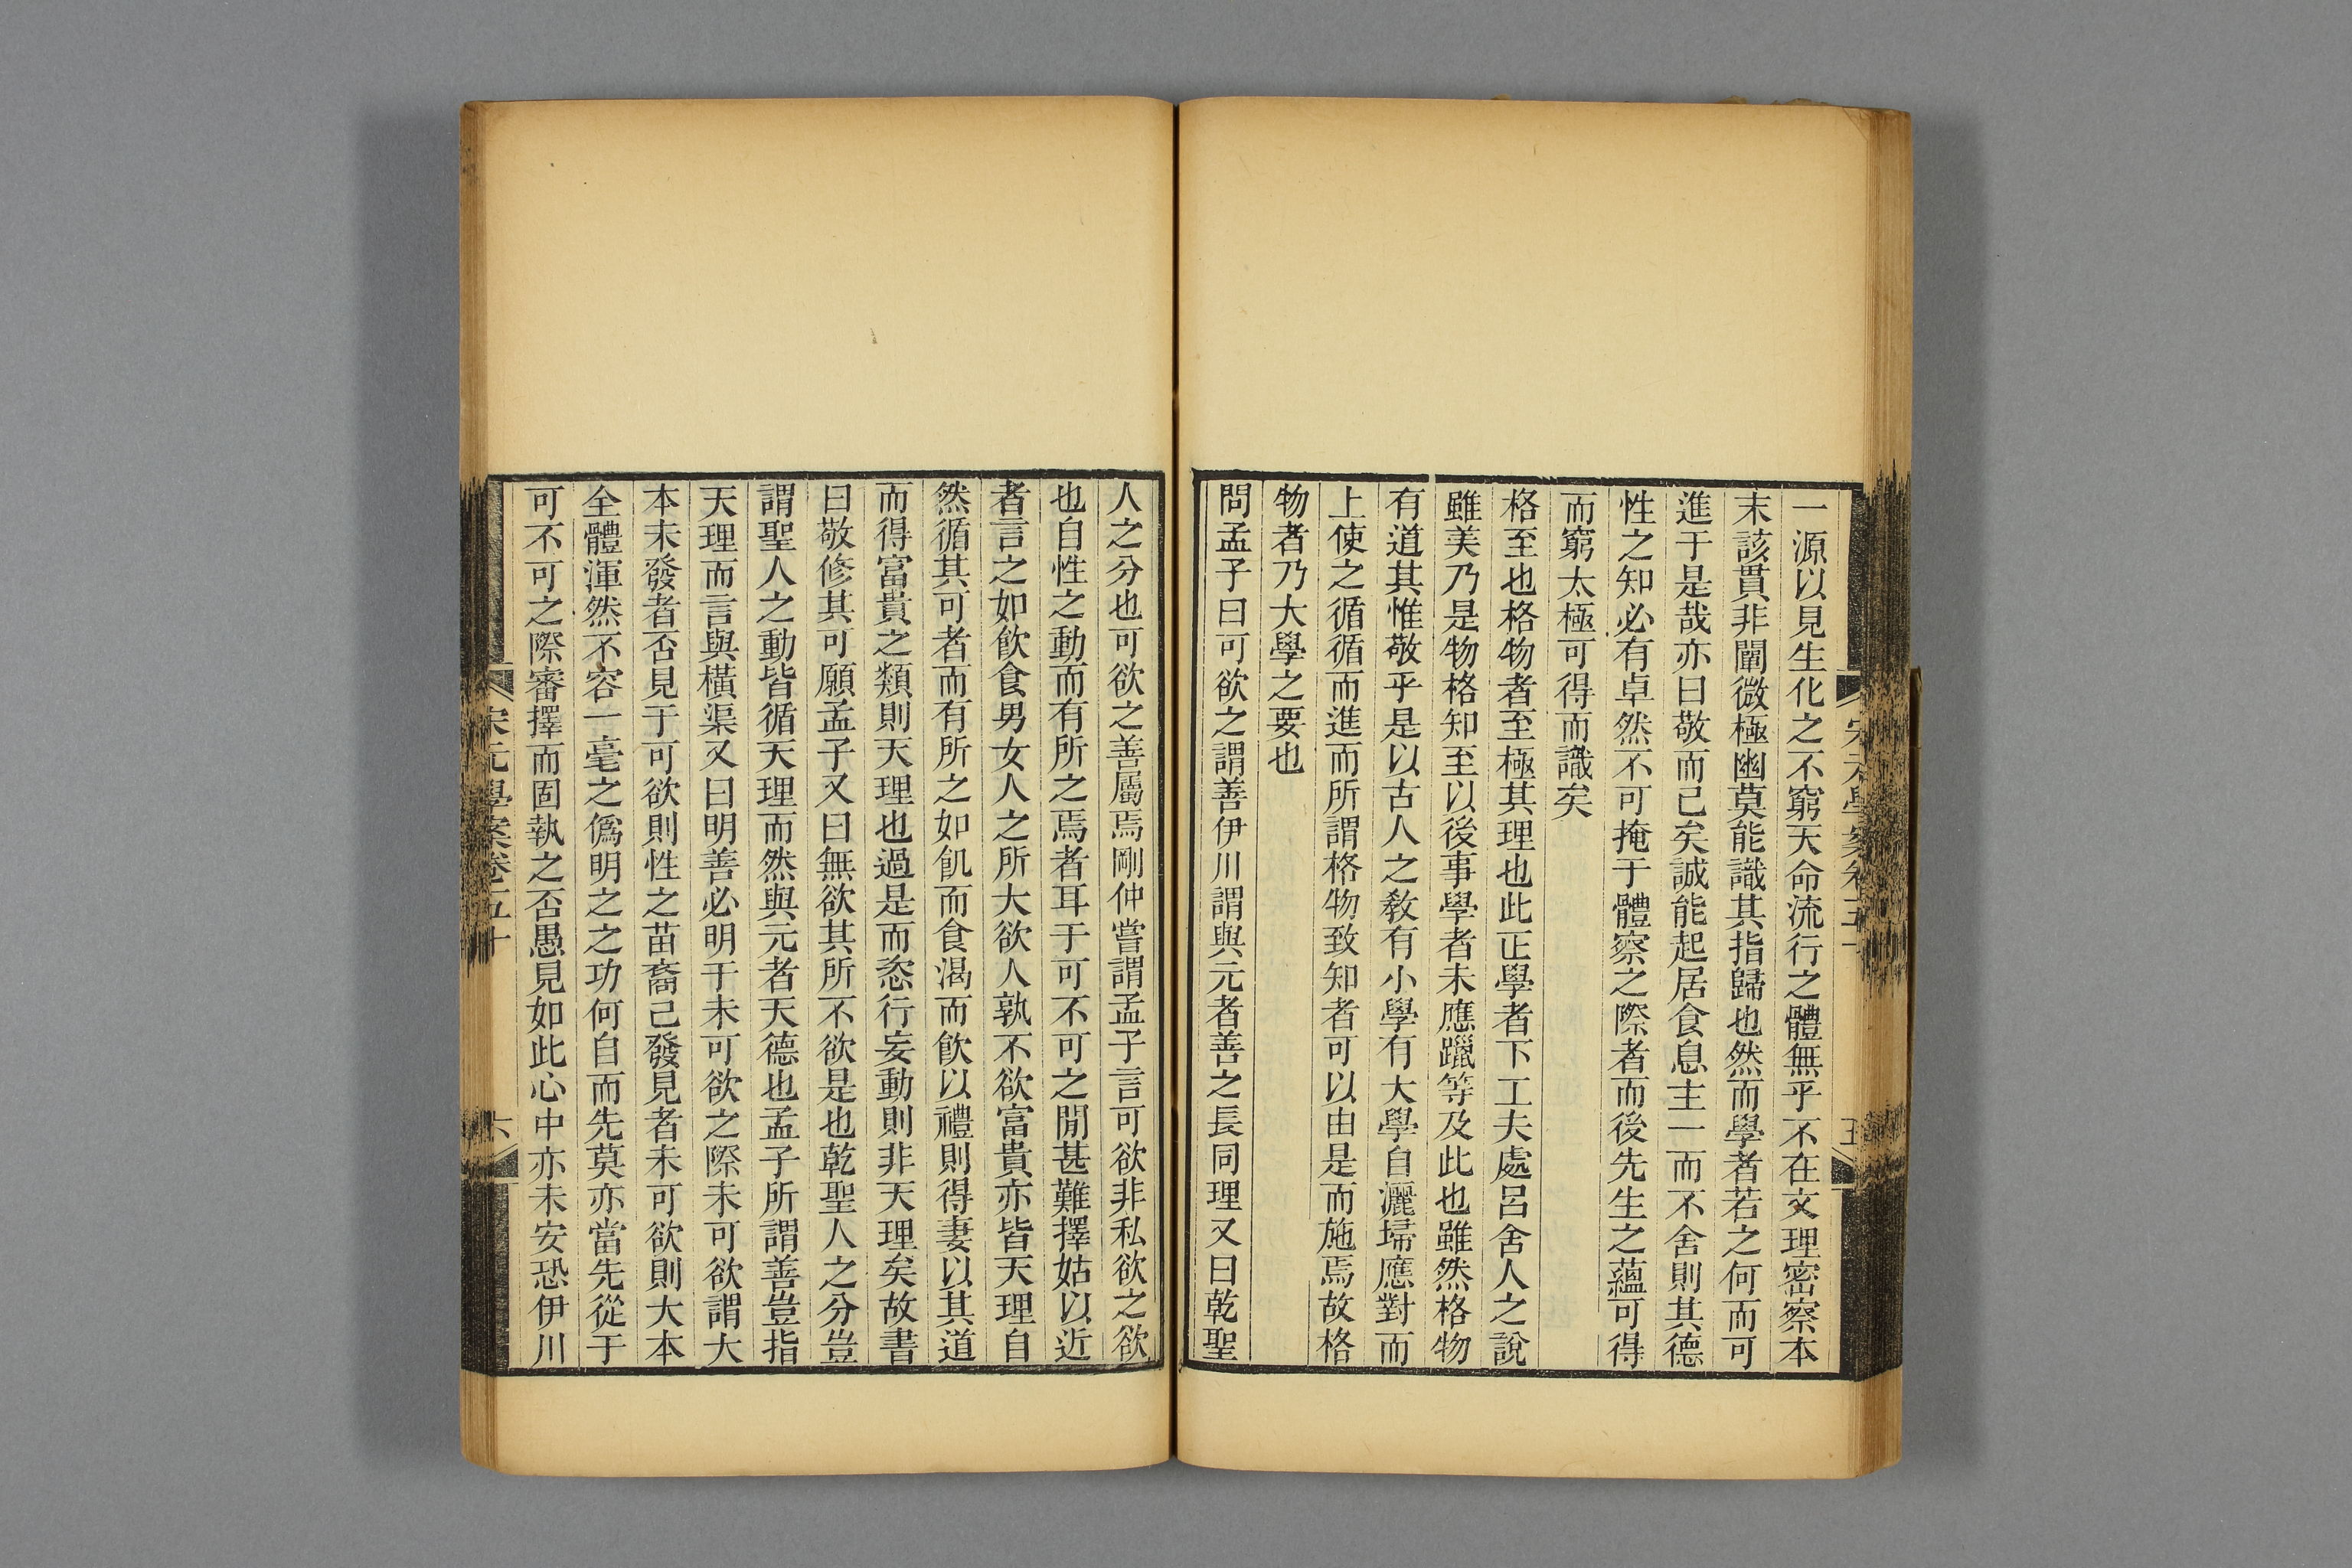 一源以見生化之不窮天命流行之體無乎不在文理密察本
末該貫非闡微極幽莫能識其指歸也然而學者若之何而可
進于是哉亦曰敬而已矣誠能起居食息主一而不舍則其德
性之知必有卓然不可掩于體察之際者而後先生之蘊可得
而窮太極可得而識矣
格至也格物者至極其理也此正學者下工夫處呂舍人之說
雖美乃是物格知至以後事學者未應躐等及此也雖然格物
有道其惟敬乎是以古人之敎有小學有大學自灑埽應對而
上使之循循而進而所謂格物致知者可以由是而施焉故格
物者乃大學之要也
問孟子曰可欲之謂善伊川謂與元者善之長同理又曰乾聖
宋元學案卷五十
五
人之分也可欲之善屬焉剛仲嘗謂孟子言可欲非私欲之欲
也自性之動而有所之焉者耳于可不可之閒甚難擇姑以近
者言之如飮食男女人之所大欲人孰不欲富貴亦皆天理自
然循其可者而有所之如飢而食渴而飮以禮則得妻以其道
而得富貴之類則天理也過是而恣行妄動則非天理矣故書
曰敬修其可願孟子又曰無欲其所不欲是也乾聖人之分豈
謂聖人之動皆循天理而然與元者天德也孟子所謂善豈指
天理而言與橫渠又曰明善必明于未可欲之際未可欲謂大
本未發者否見于可欲則性之苗裔已發見者未可欲則大本
全體渾然不容一毫之僞明之之功何自而先莫亦當先從于
可不可之際審擇而固執之否愚見如此心中亦未安恐伊川
宋元學案卷五十
六